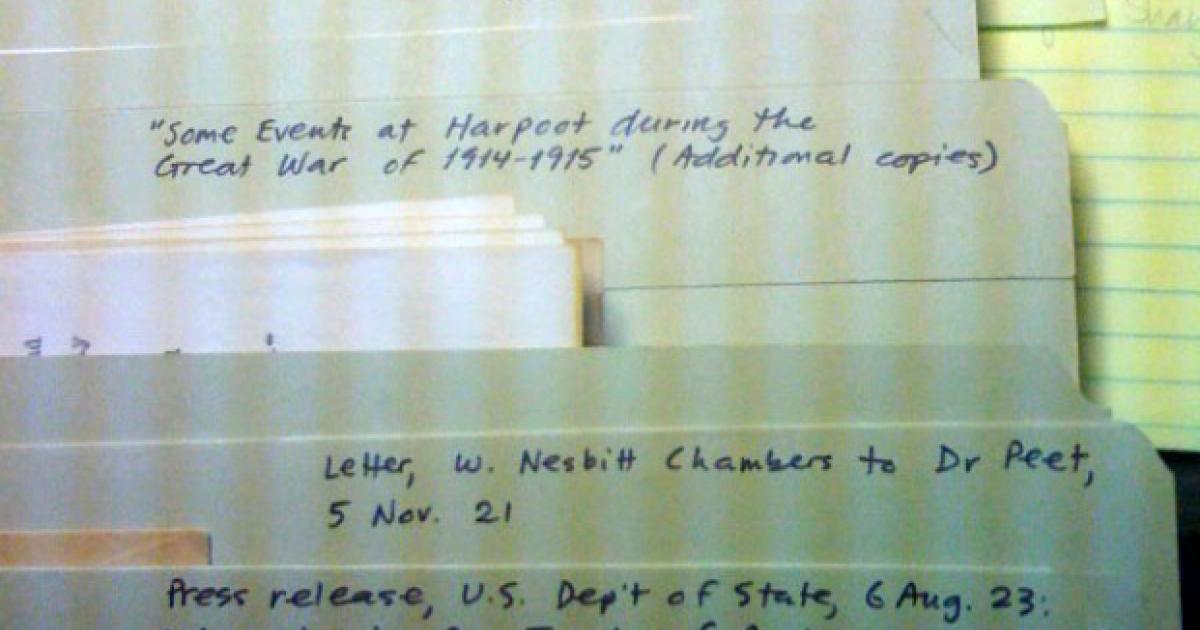 "Some Events at Harpoot during the
Great War of 1914-1915" (Additional copies)
Letter, W. Nesbitt Chambers to Dr Peet,
5 Nov. 21
Press release, U.S. Dep't of State, 6 Aug. 23: